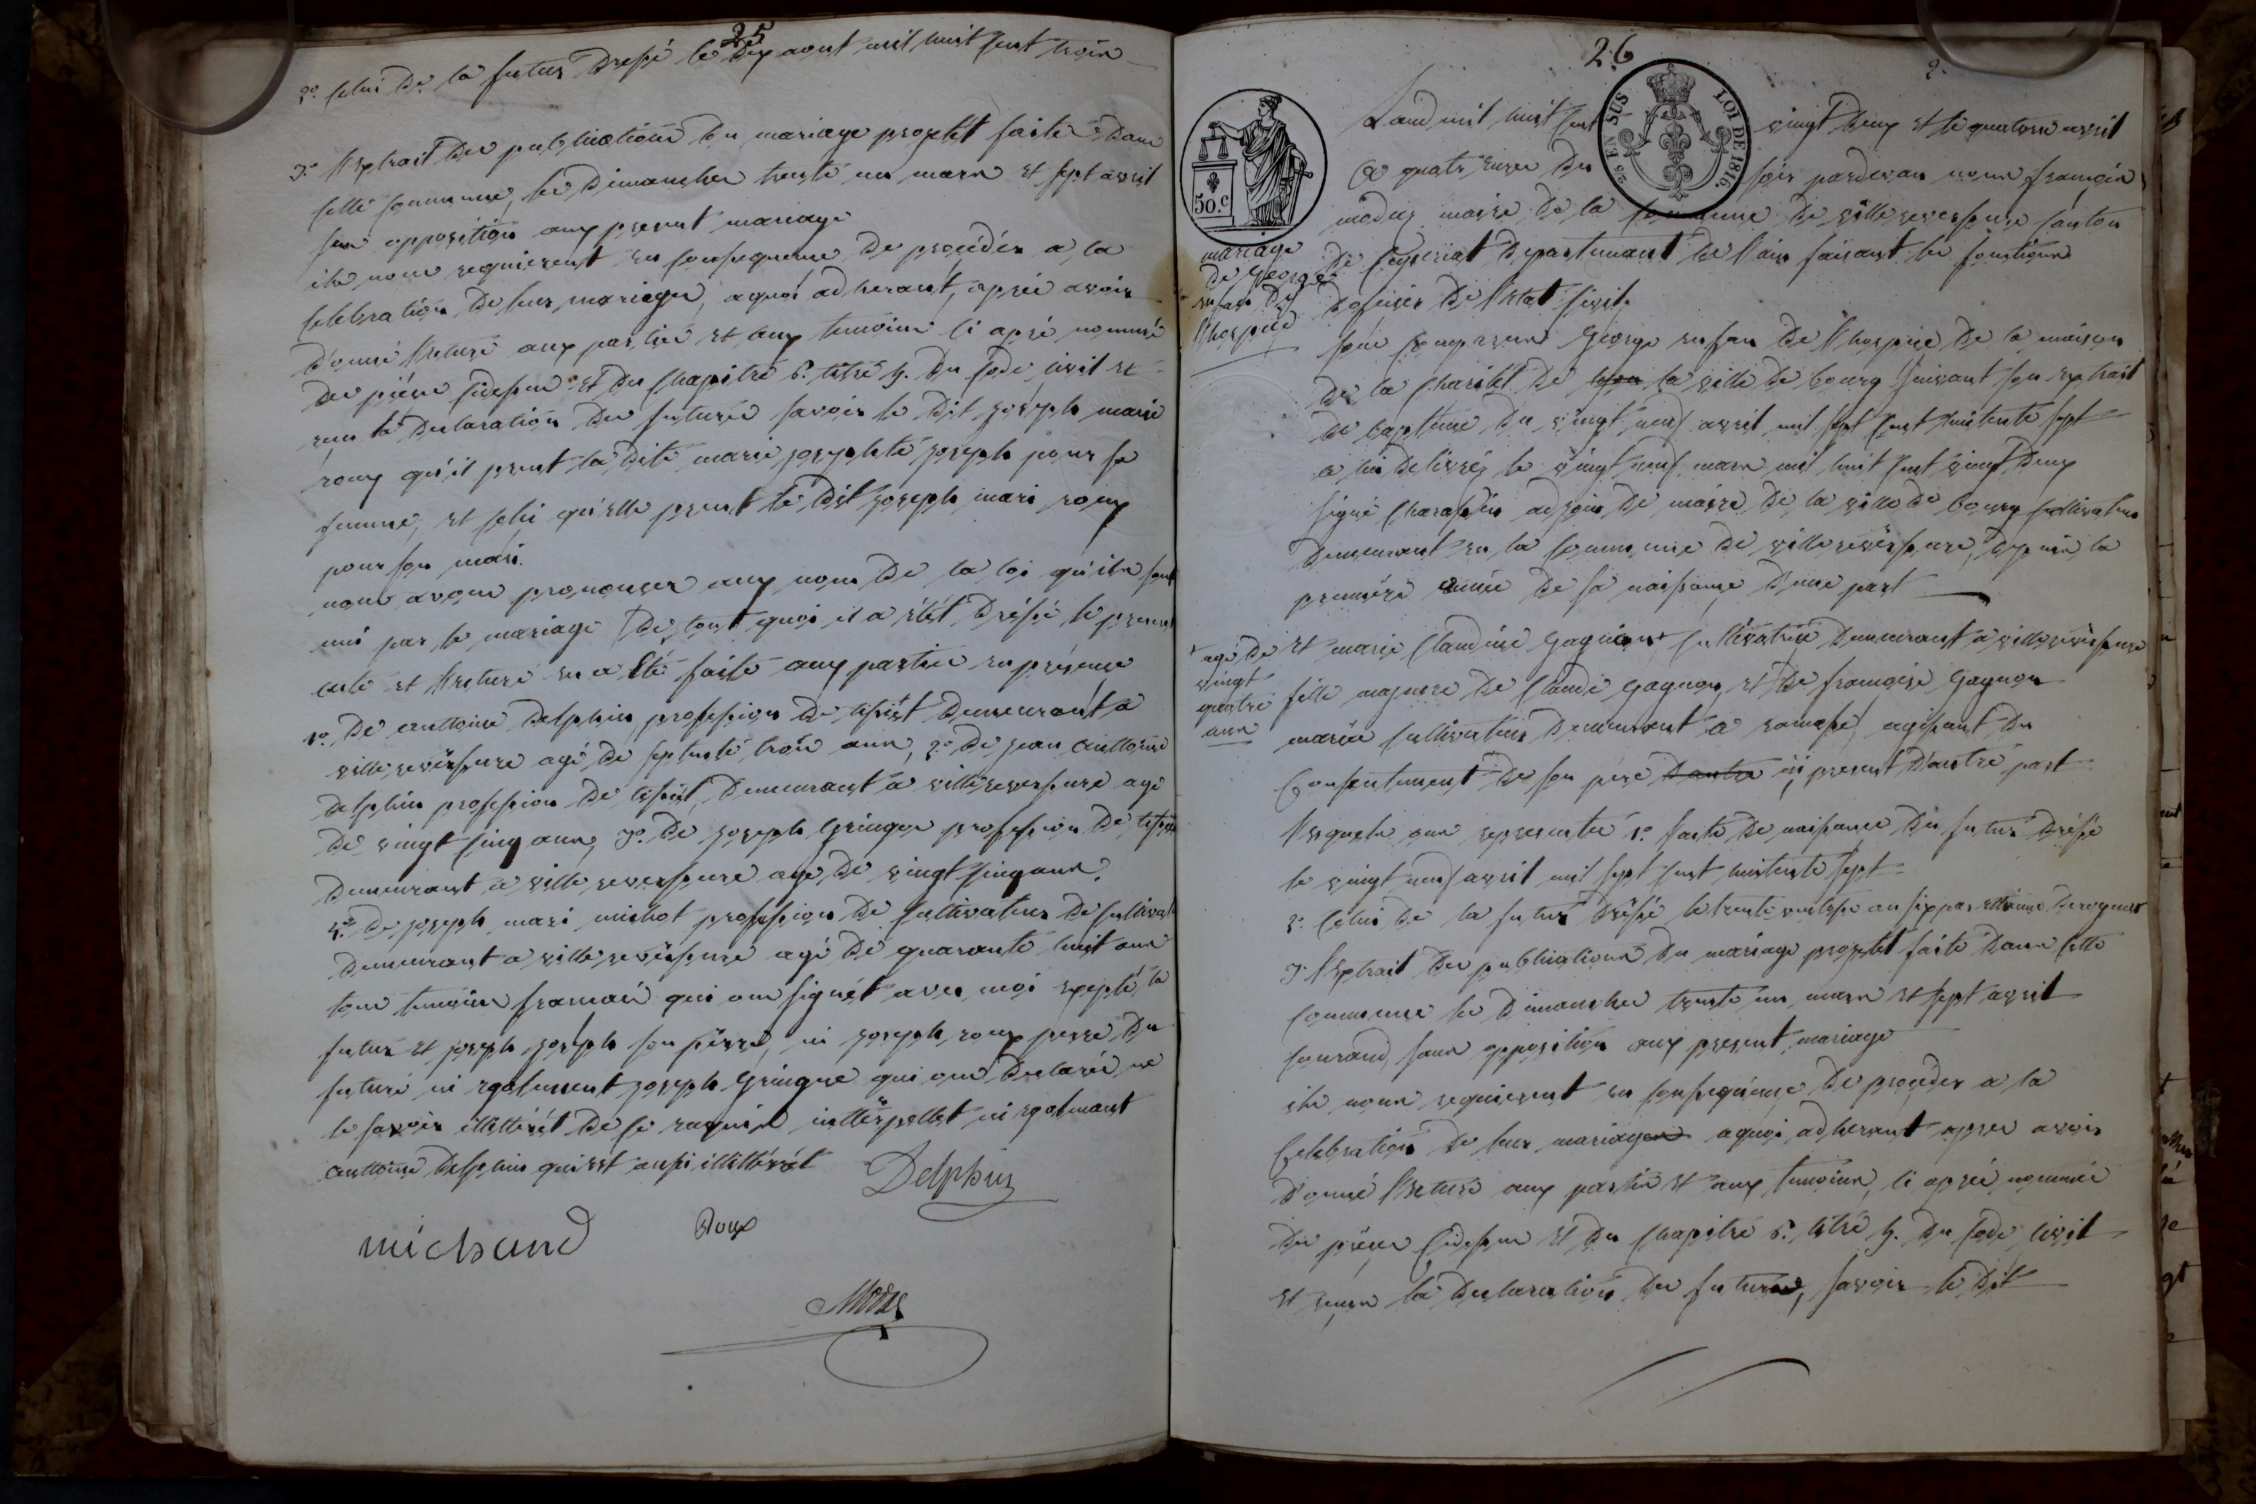 25
2°. celui de la futur dressé le dix aout mil huit cent trois
3°. l'extrait des publications du mariage projetét faite dans
cette commune, les dimanches trente un mars et sept avril
sans opposition aux present mariage
ils nous requierent en consequence de procédér a la
celebration de leur mariages, aquoi adherant, aprés avoir
donné lecture aux parties et aux temoins ci aprés nommé
des piéses cidessus et du chapitre 6. titre 5. du code civil et
reçu la declaration des futures savoir le dit joseph marie
roux qu'il prent la dite marie josephte joseph pour sa
femme, et celui qu'elle prent le dit joseph mari roux
pour son mari.
nous avons prononcer aux nom de la loi qu'ils sont
uni par le mariage de tout quoi il a étét dréssé le present
acte et lecture en a été faite aux parties en présence
1°. de anttoine delphin profession de tissiét demeurant a
villereversure agé de septente trois ans, 2°. de jean anttoine
delphin profession de tissiét, demeurant a villereversure agé
de vingt cinq ans, 3°. de joseph gringoz profession de tissié
demeurant a villereversure agé de vingt cinq ans.
4°. de joseph mari michot profession de cultivateur de cultivat
demeurant a villereversure agé de quarante huit ans
tous temoins francais qui ons signét avec moi excepté la
futur et joseph joseph son pérre, ni joseph roux perre du
futuré ni egalement joseph gringoz qui ons declarés ne
le savoir illittérét de ce requis intterpellet ni egalmant
anttoine delphin qui est aussi illittérét
Delphin
michaud
Roux
Modas
26
25 EN SUS LOI DE 1816.
50.c
Land mil huit cent vingt deux et le quatorse avril
a quatr eure du soir pardevan nous francois
modas maire de la commune de villereversure canton
de ceyzeriat departemant de l'ain faisant les fonctions
dofficier de l'etat civil.
mariage
de george
enfan de
l'hospice
sont comparus george enfan de l'hospice de la maison
de la charitét de la ville de bourg suivant son extrait
de baptéme du vingt neuf avril mil sept cent huitente sept
a lui delivréz le vingt neuf mars mil huit cent vingt deux
signé charassin adjoin de maire de la ville de bourg cultivateur
demeurant en la commune de villereversure, depuis la
premiére année de sa naissance d'une part
et marie claudine gagnion + cultivatrice demeurant a villereversure
+ agé de
vingt
quatre
ans
fille majeure de claude gagnon et de francoise gagnon
mariés cultivateur demeurant a romasse, agissant du
consentement de son pére dautre ici present d'autre part
lesquels ons representée 1°. l'acte de naissance du futur dréssé
le vingt neuf avril mil sept cent huitente sept
2°. celui de la futur dréssé le trente
3°. l'extrait des publications du mariage projetét faite dans cette
commune les dimanches trente un mars et sept avril
courand, sans opposition aux present mariage
ils nous requierent en consequence de proceder a la
celebration de leur mariages aquoi adherant aprés avoir
donné lecture aux partis et aux temoins, ci aprés nommés
des piéses cidessus et du chapitre 6. titre 5. du code civil
et reçus la declaration des futures, savoir le dit